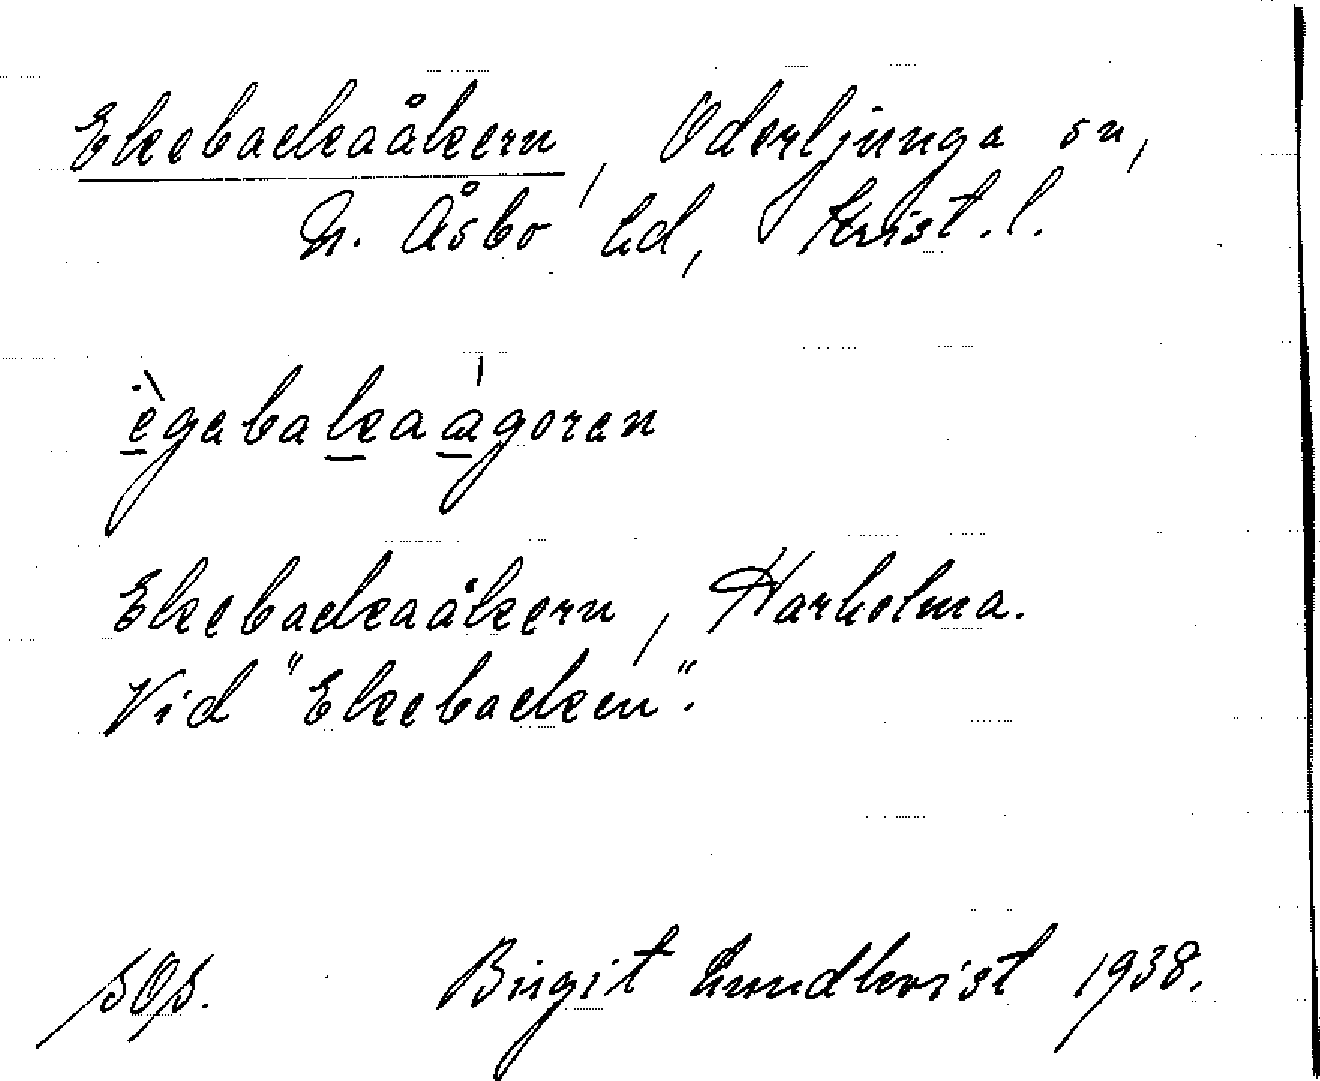 Ekebackaåkern, Oderljunga sn,
N. Åsbo hd, Krist. l.
ègabakaágoren
Ekebackaåkern, Harholma.
Vid "Ekebacken".
sOs. Birgit Lundkvist 1938.